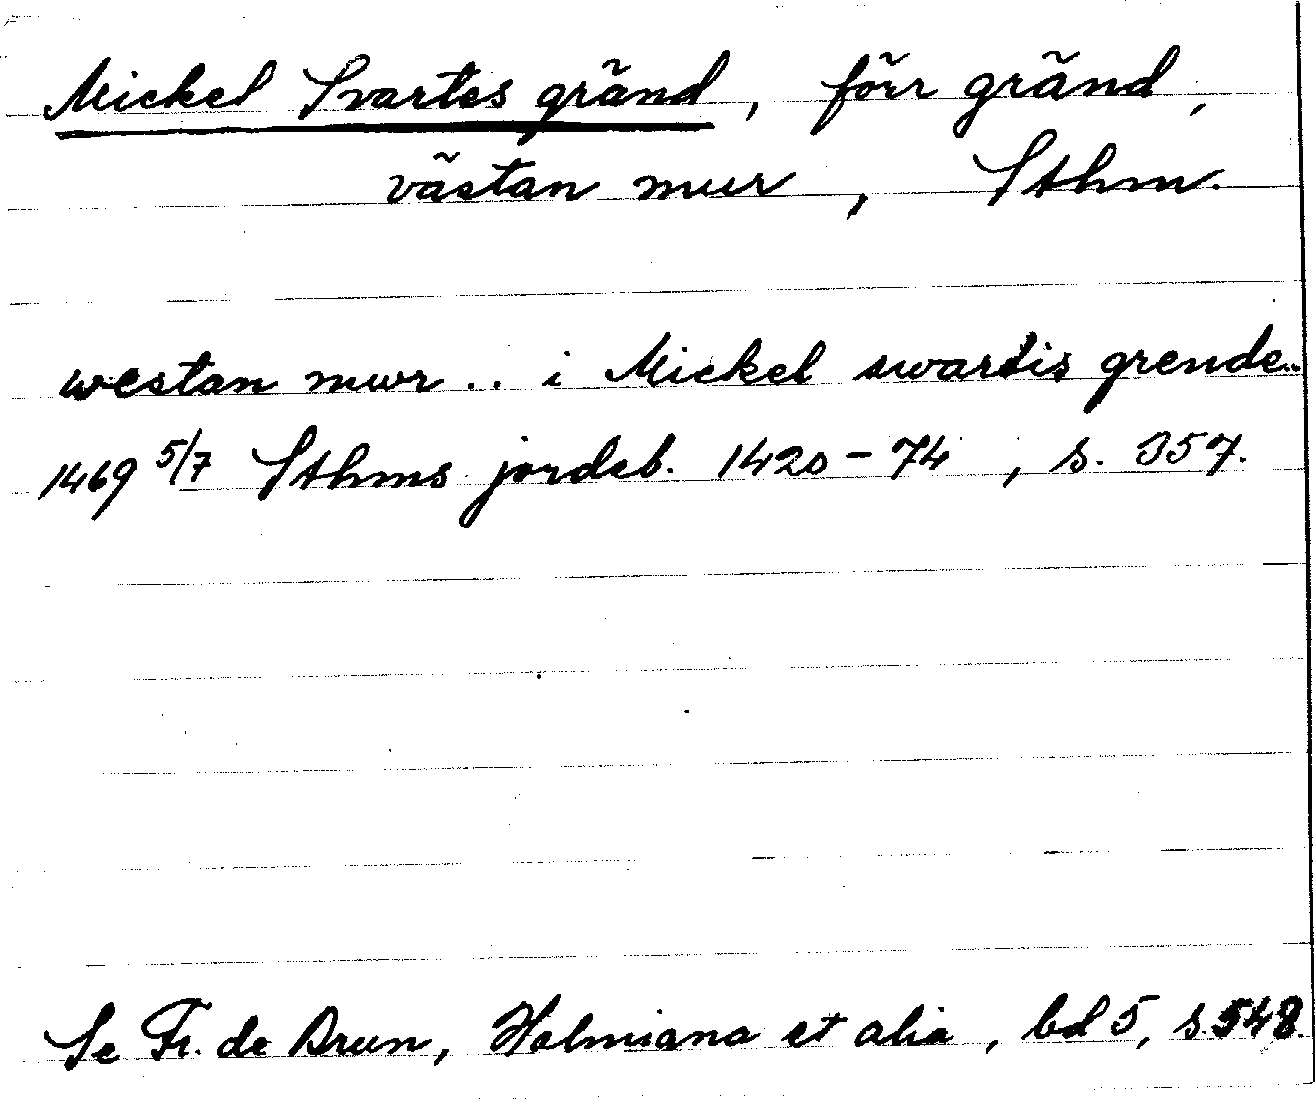 Mickel Svartes gränd, förr gränd,
västan mur, Sthm.
westan mwr .. i Mickel swartis grende..
1469 5/7 Sthms jordeb. 1420-74, s. 357.
Se Fr. de Brun, Holmiana et alia, bd 5, s. 548.